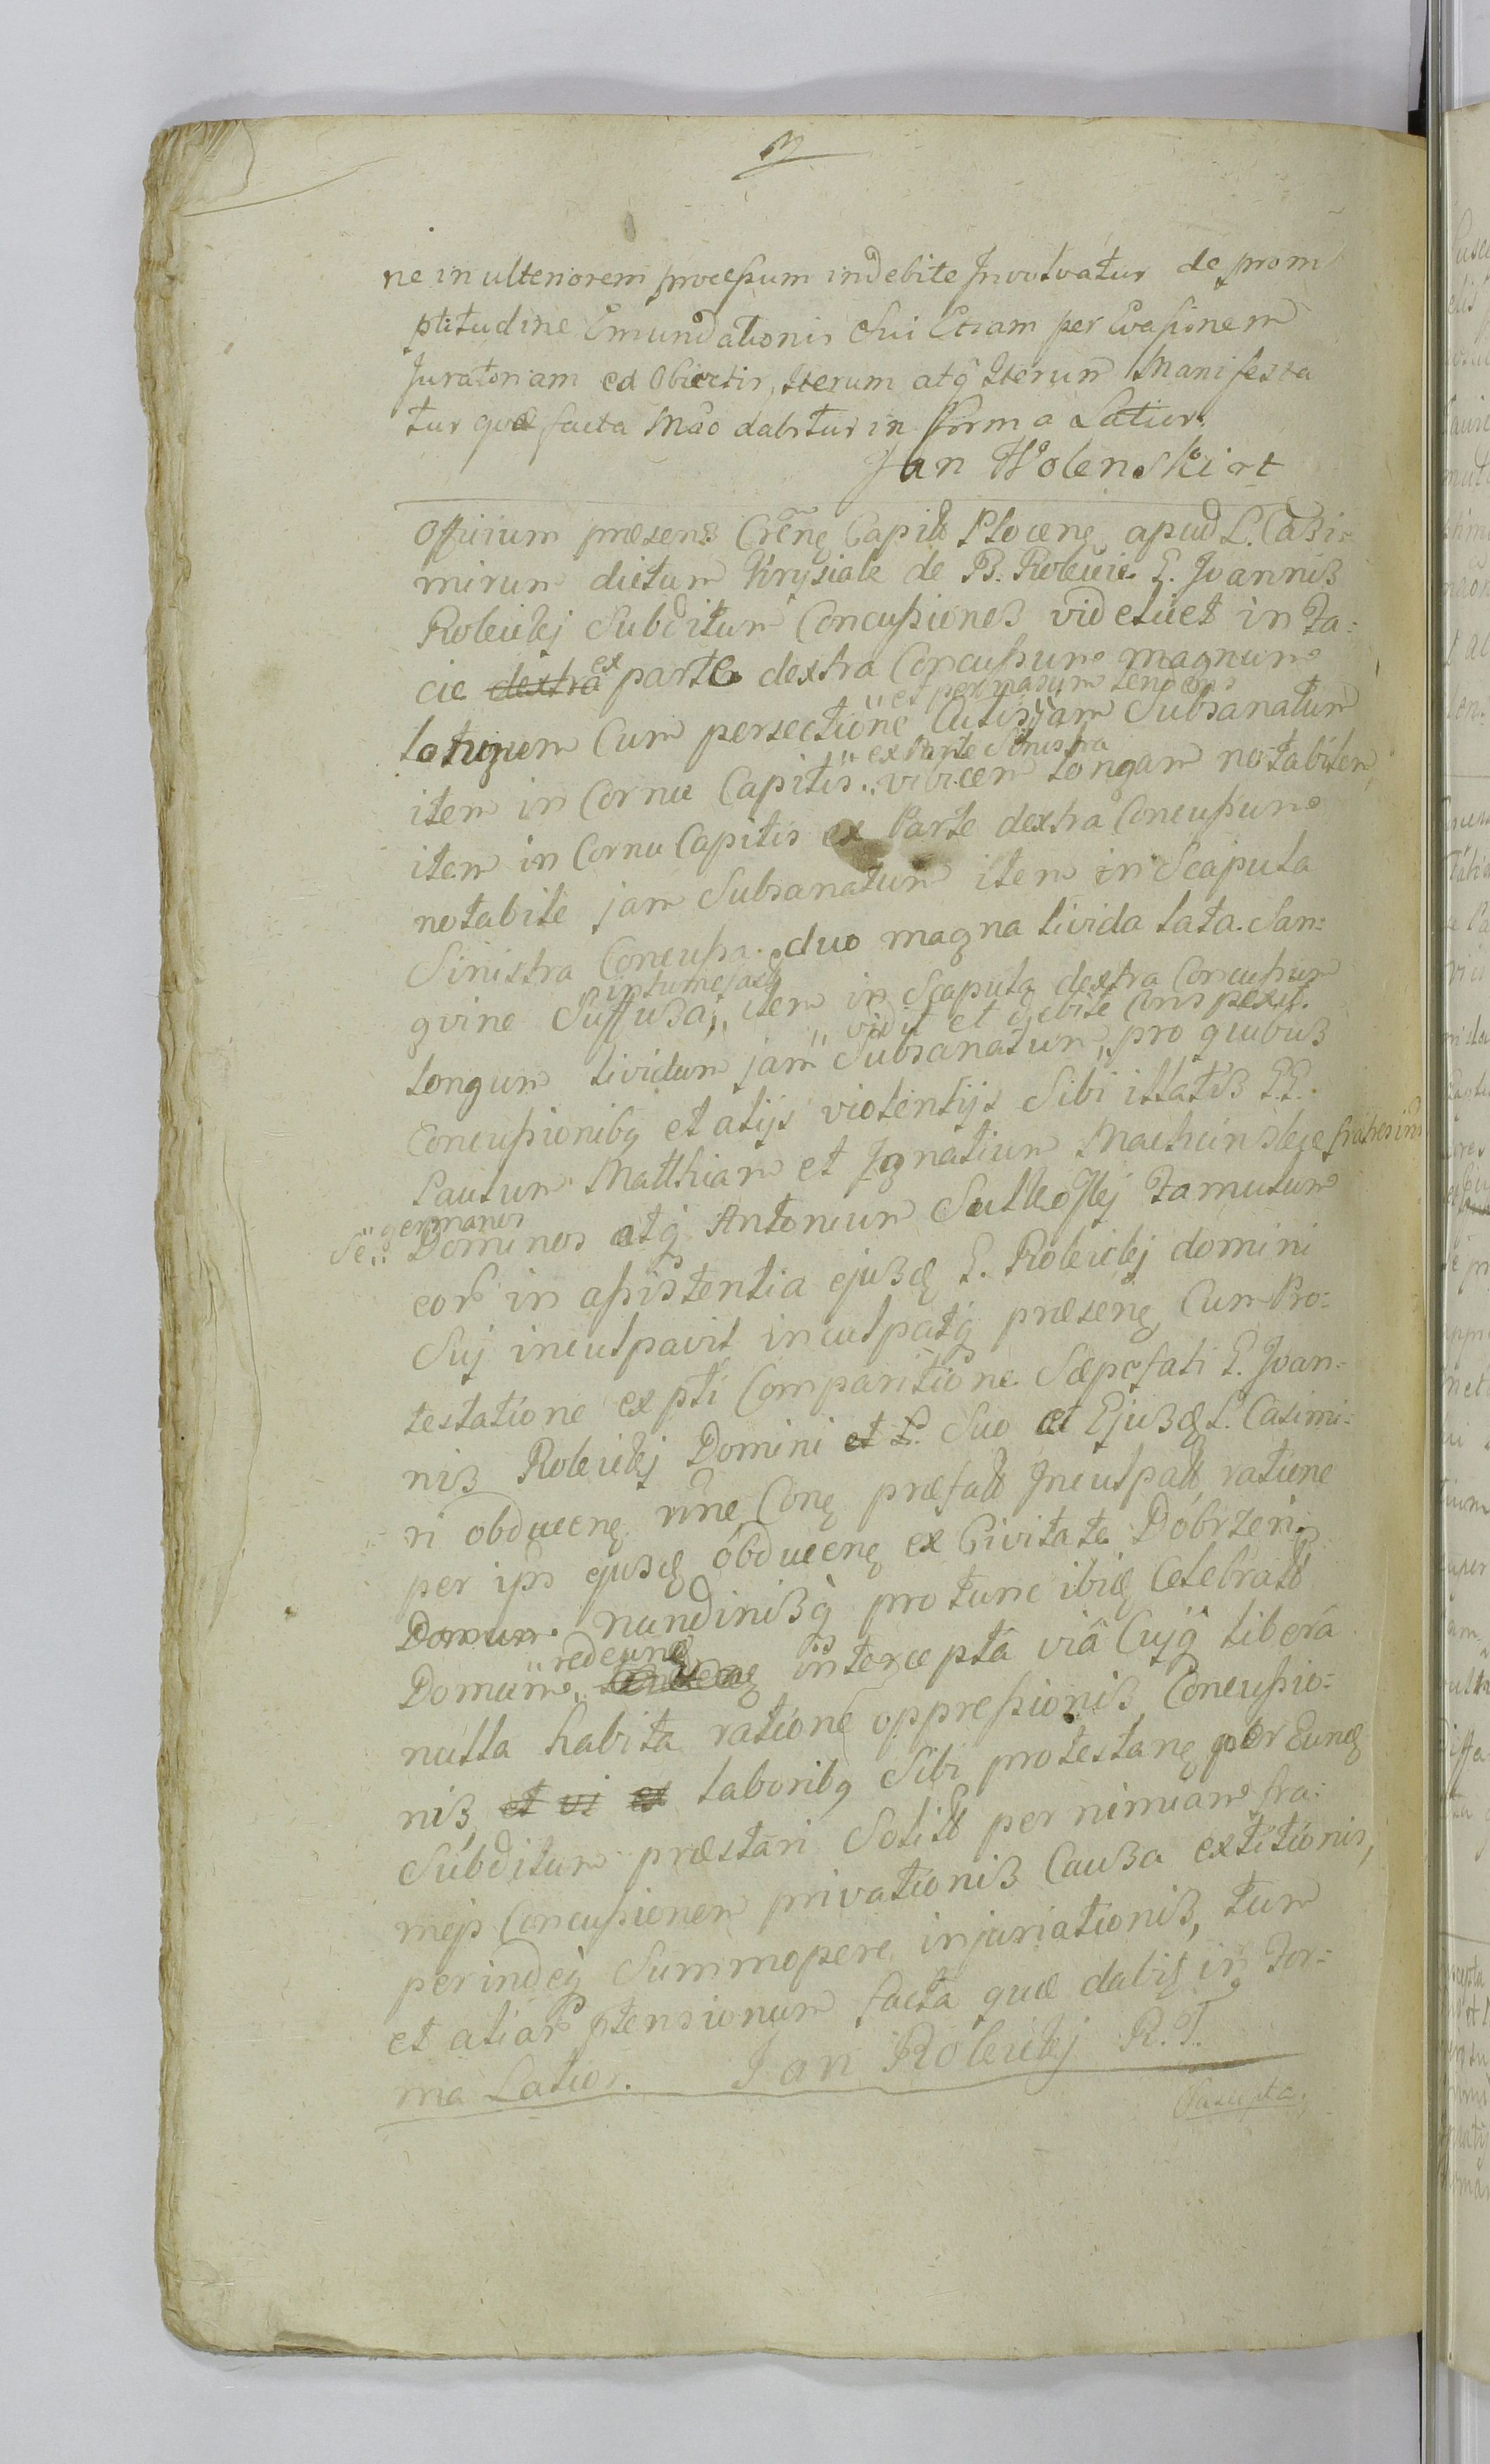 ne in ulteriorem processum indebite Involvatur de prom
ptitudine Emundationis Sui Etiam per Evasionem
Juratoriam ex Obiectis, Iterum atq Iterum Manifesta
tur quæ facta Mão dabitur in forma Latior.
Jan Wolenski rt
Officium præsens Crẽnę Capitł Plocenę apud L. Casi-
mirum dictum Krysiak de B. Rolewie G. Joannis
Rolewkj Subditum Concussiones videlicet in Fa:
cie dextra ex parte dextra Concussum magnum
longum Cum persectione Cutis „et per nasum tendens„ jam Subsanatum
item in Cornu Capitis „ex Parte Sinistra„ vibicem longam notabilem
item in Cornu Capitis ex Parte dextra Concussum
notabile jam Subsanatum item in Scapula
Sinistra Concussa duo magna livida lata San:
gvine Suffusa „intumefact„ item in Scapula dextra Concussum
longum lividum jam Subsanatum „vidit et debite Conspexit.„ pro quibus
Concussionibq et alijs violentijs Sibi illatis G.G.
Paulum Matthiam et Ignatium fratres inter
Se „germanos„ Dominos atq Antonium Famulum
eorr in assistentia ejusdę G. Rolewkj domini
Suj inculpavit inculpatq præsenę Cum Pro:
testatione ex pti Comparitione Sæpefati G. Joan:
nis Rolewkj Domini et L. Suo et Ejusdę L. Casimi:
ri obducenę Conę præfatł Inculpatł ratione
per ips ejusdę obducenę ex Civitate Dobrzenę
Domum nundinisq pro tunc ibidę Celebratł
Domum „redeundę„ interceptâ viâ Cujq liberâ
nulla habita ratione oppressionis Concussio:
nis et vi et laboribq Sibi protestanę per Eundę
Subditum præstari Solitł per nimiam fra:
mejs Concussionem privationis Causa extitionis,
perindeq Summopere injuriationis, tum
et aliarr ptensionum facta quæ dabit in For:
ma Latior. Jan Rolewkj R.T.